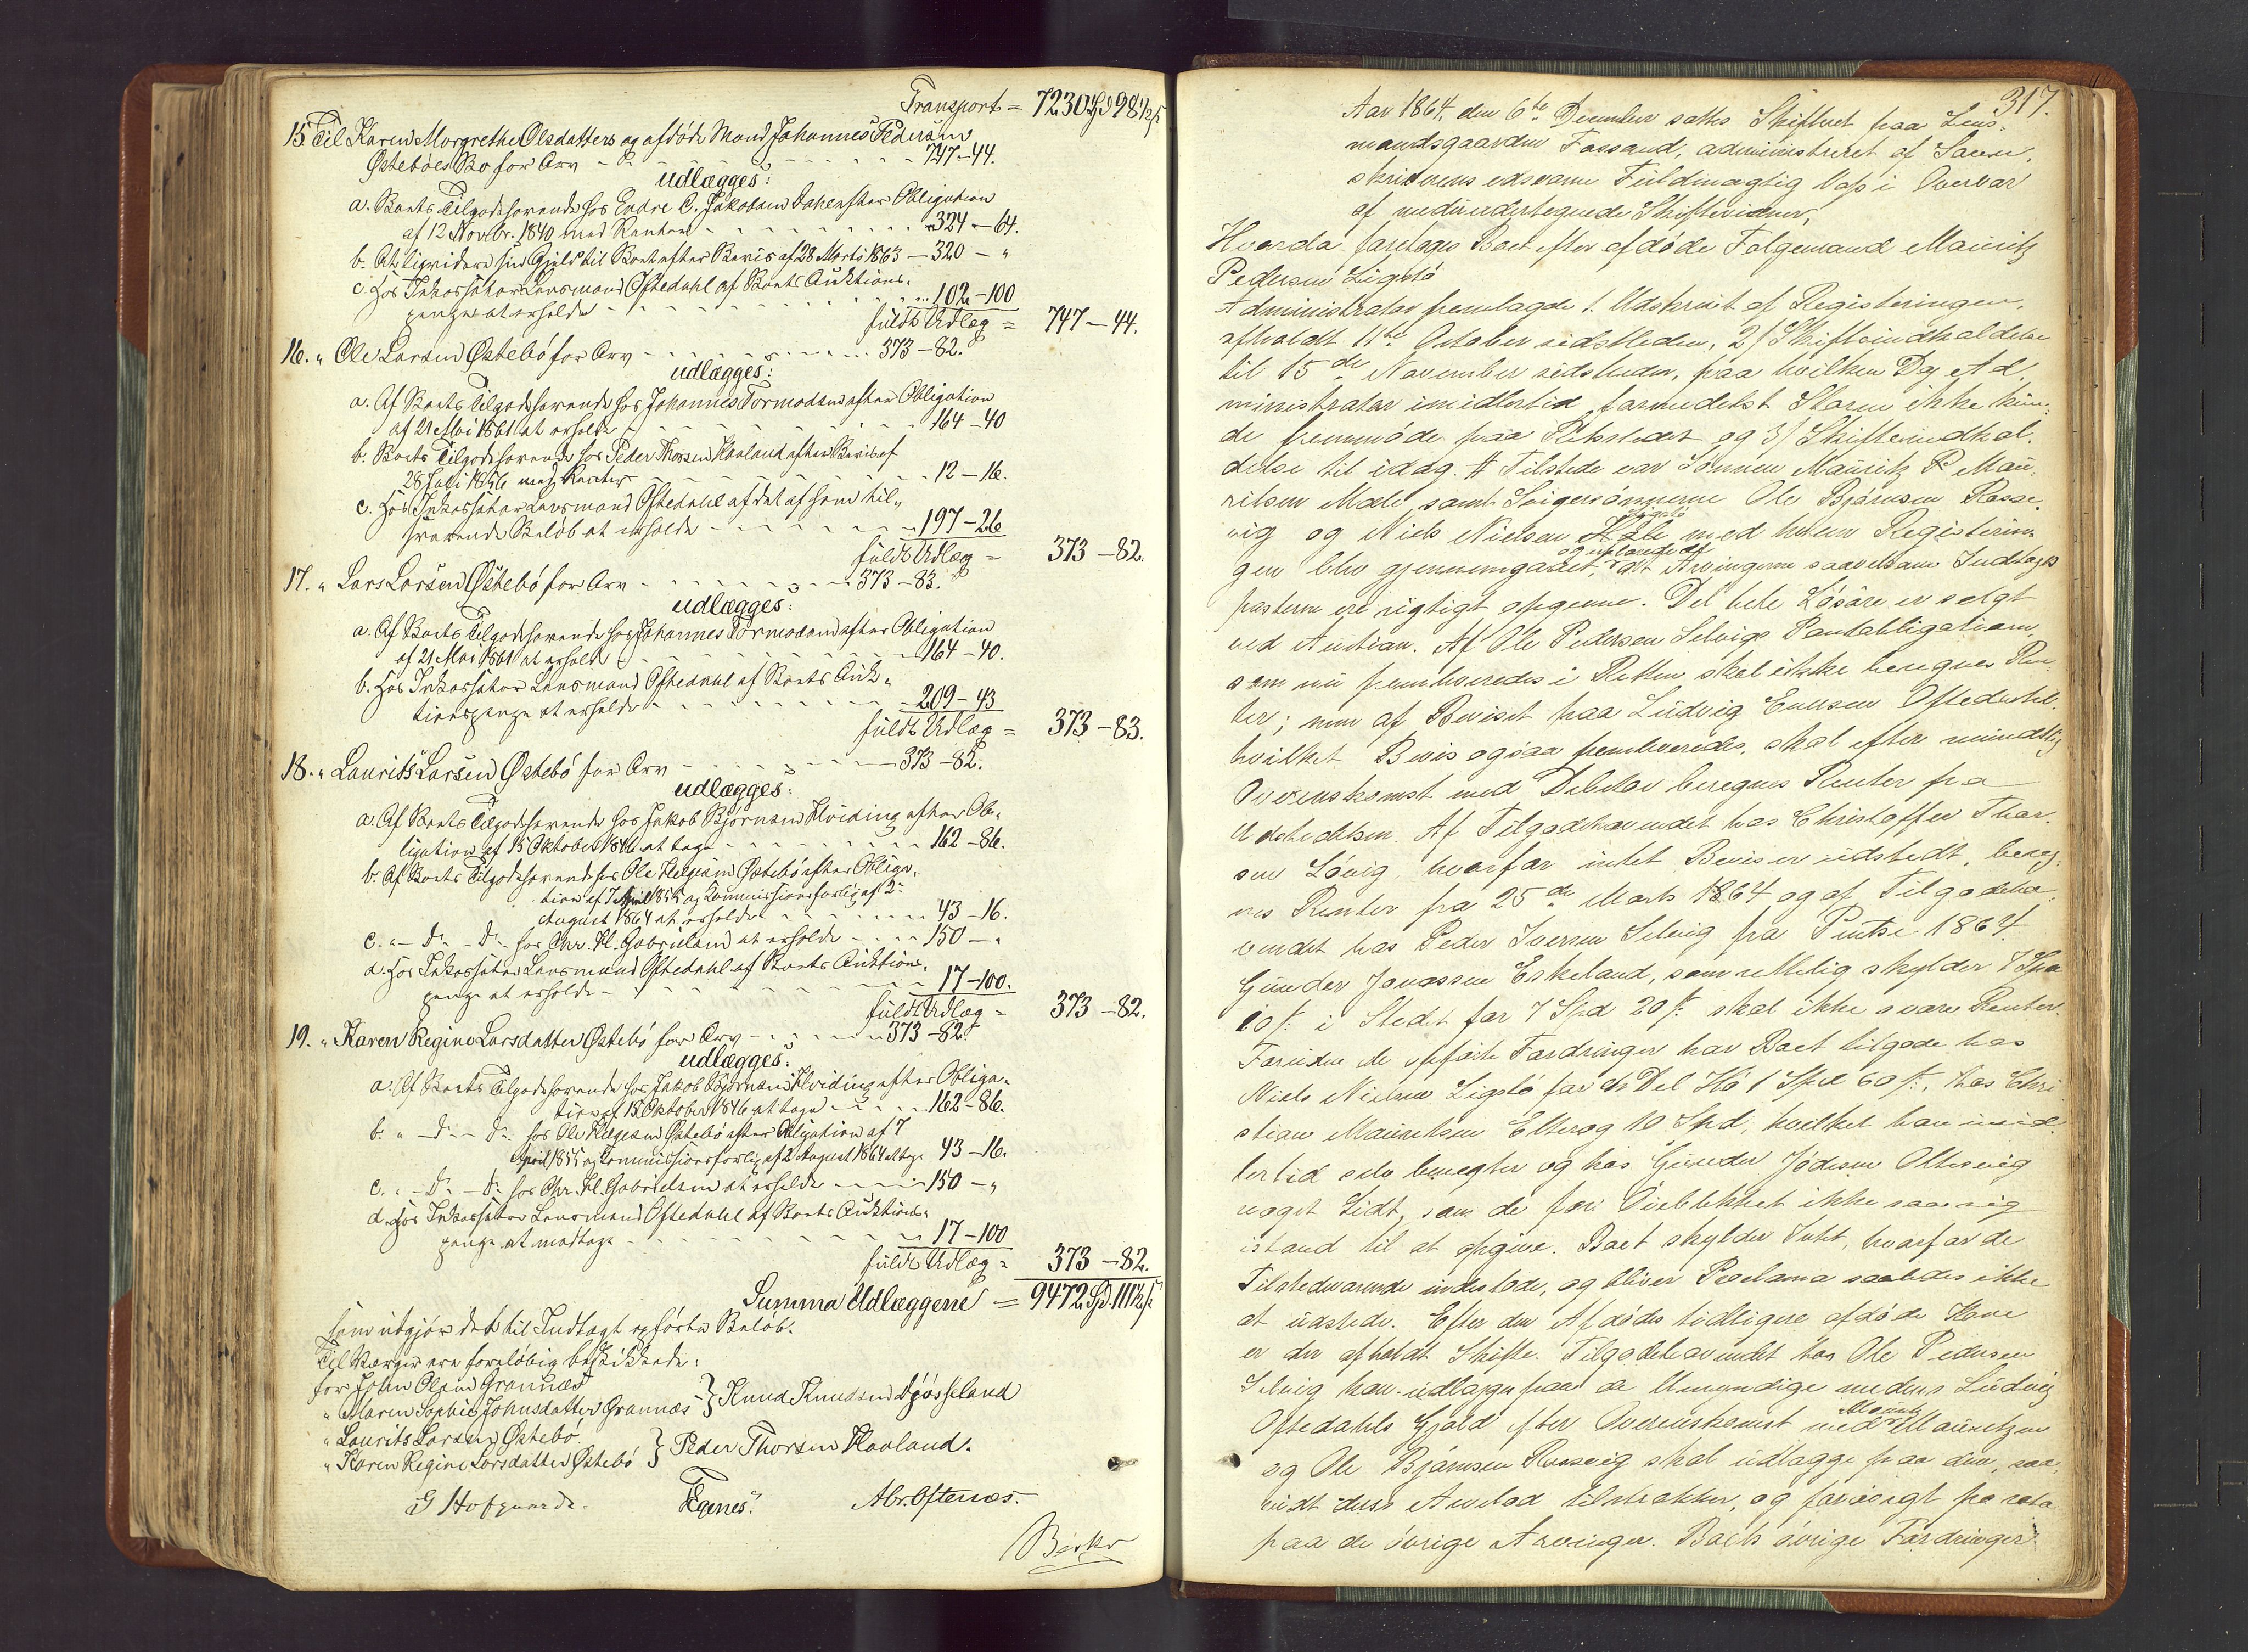 Transport = 7230 Spd 98½ s
15. Til Karen Margrethe Olsdatters og afdøde Mand Johannes Pedersen
Østebøes Bo for Arv - 747-44.
udlægges:
a. Boets Tilgodehavende hos Endre C. Jakobsen Dahl efter Obligation
af 12 Novbr. 1840 med Renter - 324-64.
b. At liqvidere sin Gjeld til Boet efter Bevis af 28 Marts 1863 - 320 - "
c. Hos Inkassator Lensmand Oftedahl af Boets Auktions-
penge at erholde - 102-100
fuldt Udlæg = 747-44.
16. " Ole Larsen Østebø for Arv - 373-82.
udlægges:
a. Af Boets Tilgodehavende hos Johannes Tormodsen efter Obligation
af 21 Mai 1861 at erholde - 164-40
b. Boets Tilgodehavende hos Peder Thorsen Haaland efter Bevis af
28 Juli 1856 med Renter - 12-16.
c. Hos Inkassator Lensmand Oftedahl af det af ham til-
svarende Beløb at erholde - 197-26
fuldt Udlæg = 373-82.
17. " Lars Larsen Østebø for Arv - 373-83.
udlægges:
a. Af Boets Tilgodehavende hos Johannes Tormodsen efter Obligation
af 21 Mai 1861 at erholde - 164-40.
b. Hos Inkassator Lensmand Oftedahl af Boets Auk-
tionspenge at erholde - 209-43
fuldt Udlæg = 373-83.
18. " Laurits Larsen Østebø for Arv - 373-82.
udlægges:
a. Af Boets Tilgodehavende hos Jakob Bjørnsen Hviding efter Ob-
ligation af 15 Oktober 1846 at tage - 162-86.
b. Af Boets Tilgodehavende hos Ole Helgesen Østebø efter Obliga-
tion af 7 April 1855 og Kommissionsforlig af 2-
August 1864 at erholde - 43-16.
c. " - D° - D° - hos Chr. Hl. Gabrielsen at erholde - 150 - "
d. Hos Inkassator Lensmand Oftedahl af Boets Auktions-
penge at erholde - 17-100.
fuldt Udlæg = 373-82.
19. " Karen Regine Larsdatter Østebø for Arv - 373-82.
udlægges:
a. Af Boets Tilgodehavende hos Jakob Bjørnsen Hviding efter Obliga-
tion af 15 Oktober 1846 at tage - 162-86.
b. " - D° - D° hos Ole Helgesen Østebø efter Obligation af 7
April 1855 og Kommissionsforlig af 2 August 1864 at tage 43-16.
c. " - D° - D° hos Chr. Hl. Gabrielsen at erholde - 150 - "
d. Hos Inkassator Lensmand Oftedahl af Boets Auktions-
penge at modtage - 17-100
fuldt Udlæg = 373-82.
Summa Udlæggene = 9472 Spd 111½ s
som utgjør det til Indtægt opførte Beløb.
Til Værger ere foreløbig beskikkede:
for John Olsen Grannæs
" Maren Sophie Johnsdatter Grannæs } Knud Knudsen Djøsseland
" Laurits Larsen Østebø
" Karen Regine Larsdatter Østebø } Peder Thorsen Haaland.
G Hofgaarde. Egenes. Abr. Oftenæs.
317.
Aar 1864, den 6te December sattes Skifteret paa Lens-
mandsgaarden Fossand, administreret af Soren-
skriverens edsvorne Fuldmægtig Vass i Overvær
af medundertegnede Skiftevidner,
Hvorda foretoges Boet efter afdøde Følgemand Mauritz
Pedersen Ligstø
Administrator fremlagde 1. Udskrift af Registeringen,
afholdt 11te October sidstleden, 2/ Skifteindkaldelse
til 15de November sidstleden, paa hvilken Dag Ad-
ministrator imidlertid formedelst Storm ikke kun-
de fremmøde paa Retsstedet og 3/ Skifteindkal-
delse til idag. # Tilstede var Sønnen Mauritz P. Mau-
ritsen Mæle samt Svigersønnerne Ole Bjørnsen Rosse-
vig og Niels Nielsen Ligstø med hvem Registerin-
gen blev gjennemgaaet, og erklærede at Arvingerne saavelsom Indtægts
posterne ere rigtigt opgivne. Det hele Løsøre er solgt
ved Auction. Af Ole Pedersen Selvigs Pantobligation,
som nu fremleveredes i Retten skal ikke beregnes Ren-
ter; men af Beviset paa Ludvig Enersen Oftedahl,
hvilket Bevis ogsaa fremleveredes, skal efter mundtlig
Overenskomst med Debitor beregnes Renter fra
Udstedelsen. Af Tilgodehavendet hos Christoffer Thor-
sen Løvig, hvorfor intet Bevis er udstedt, bereg-
nes Renter fra 25de Marts 1864 og af Tilgodeha-
vendet hos Peder Iversen Selvig fra Pintse 1864.
Gunder Jonassen Eskeland, som rettelig skylder 7 Spd
10 s i Stedet for 7 Spd 20 s skal ikke svare Renter.
Foruden de opførte Fordringer har Boet tilgode hos
Niels Nielsen Ligstø for en Del Hø 1 Spd 60 s, hos Chri-
stian Mauritsen Eltevog 10 Spd, hvilket han imid-
lertid selv benegter og hos Gunder Jødesen Oltesvig
noget Lidt, som de for Øieblikket ikke saae sig
istand til at opgive. Boet skylder Intet, hvorfor de
Tilstedeværende indestode, og bliver Proclama saaledes ikke
at udstede. Efter den Afdødes tidligere afdøde Kone
er der afholdt Skifte. Tilgodehavendet hos Ole Pedersen
Selvig kan udlægges paa de Umyndige medens Ludvig
Oftedahls Gjæld efter Overenskomst med Mauritz Mauritzen
og Ole Bjørnsen Rossevig skal udlægges paa dem, saa-
vidt deres Arvelod tilstrækker, og forøvrigt pro rata
paa de øvrige Arvinger. Boets øvrige Fordringer